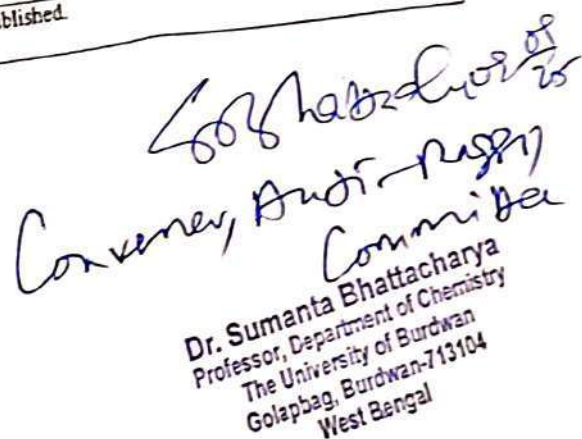 blished.
Convener, Anti-Ragging
Committee
Dr. Sumanta Bhattacharya
Professor, Department of Chemistry
The University of Burdwan
Golapbag, Burdwan-713104
West Bengal